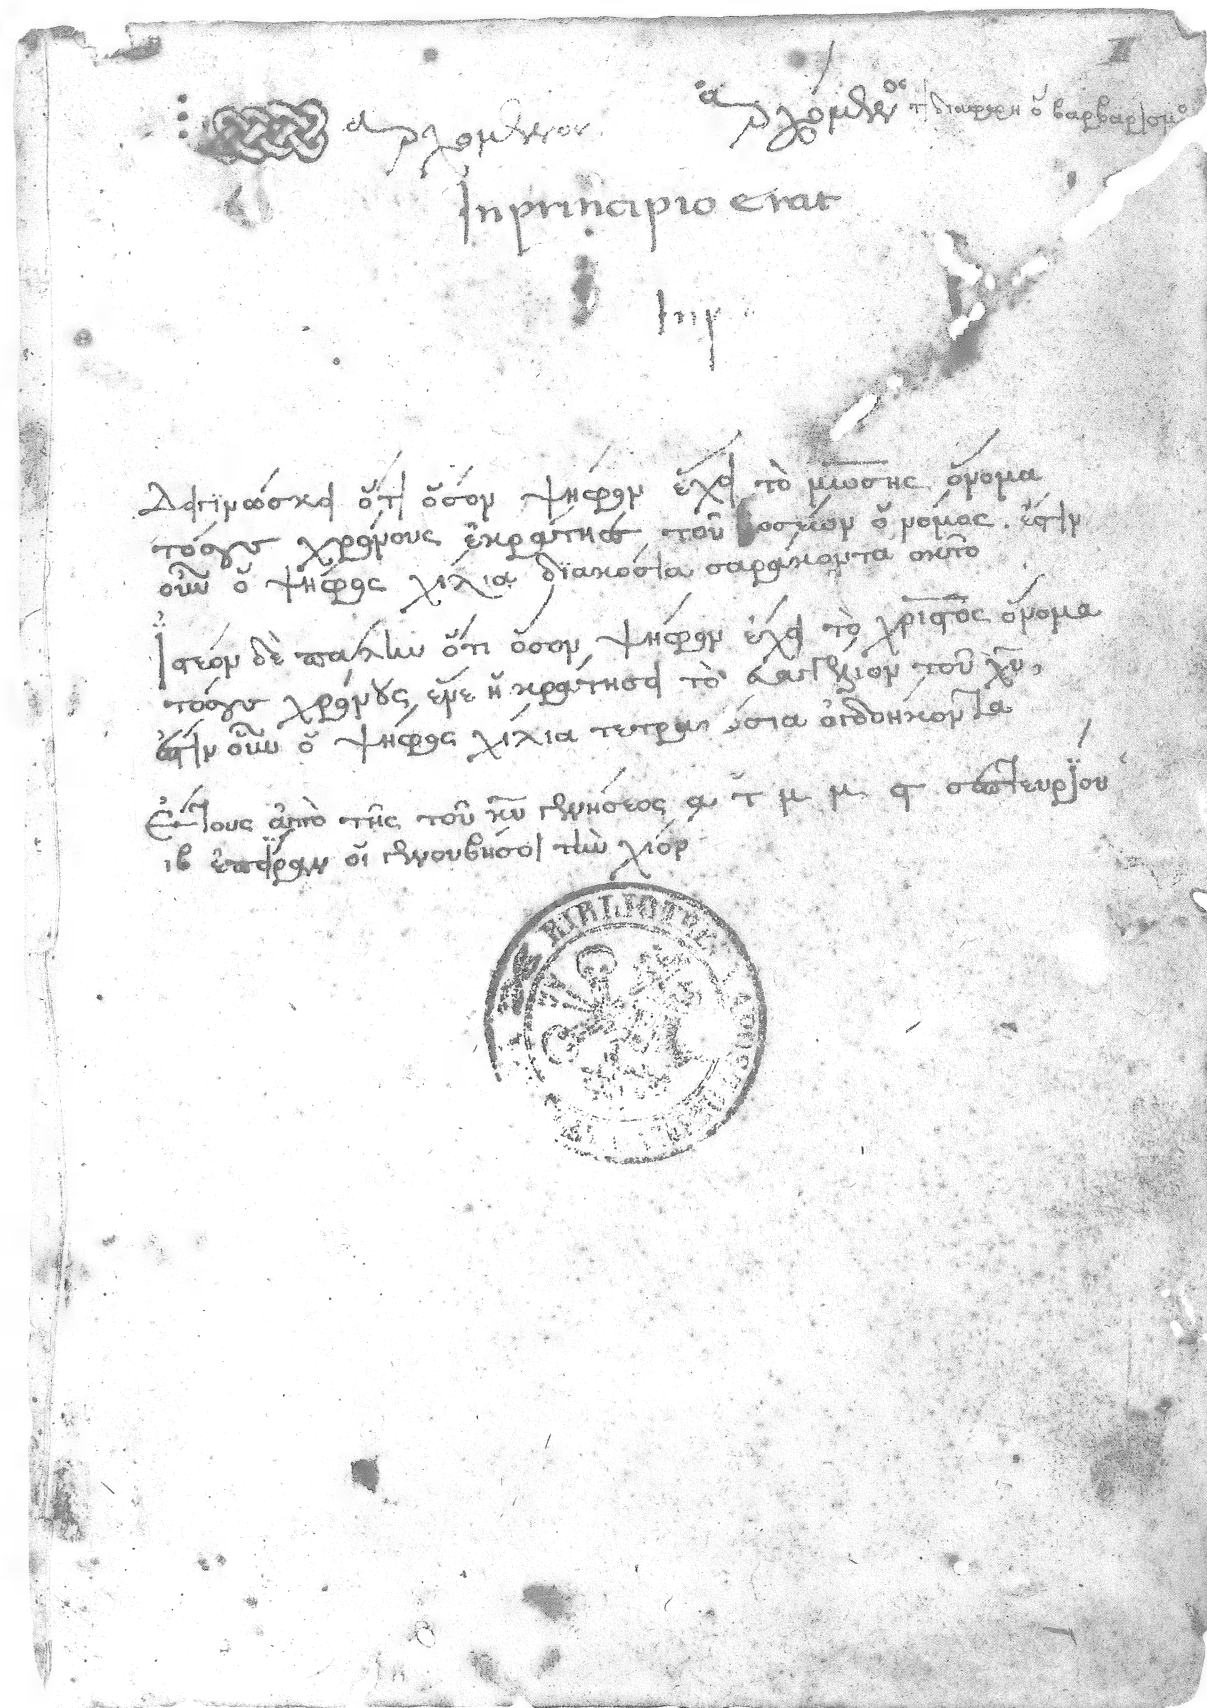 ἀρχόμενου ἀρχόμενος τὶ διαφερη ὁ βαρβαρισμὸ
In principio erat
Inp
ὅτι ὅσον ψήφον ἔχει τὸ μωσης ὄνομα
τόσους χρόνους ἐκράτησε τοῦ ὁ νόμος. ἔστιν
οὖν ὁ ψήφος χίλια διακόσια σαράκοντα οκτὸ
Ἰστέον δὲ πάλιν ὅτι ὅσον ψήφον ἔχει τὸ χριστὸς ὄνομα
τόσους χρόνους κρατησει τὸ τοῦ χυ,
ἔστιν οὖν ὁ ψήφος χίλια ὀγδοήκοντα
Ἔτους ἀπὸ τῆς τοῦ κυ γεννήσεος α τ μ μ ς σεπτευρίου
ιβ ἐπῆραν οἱ γενουβήσοι τὴν χίον
BIBLIOTHECA APOSTOLICA